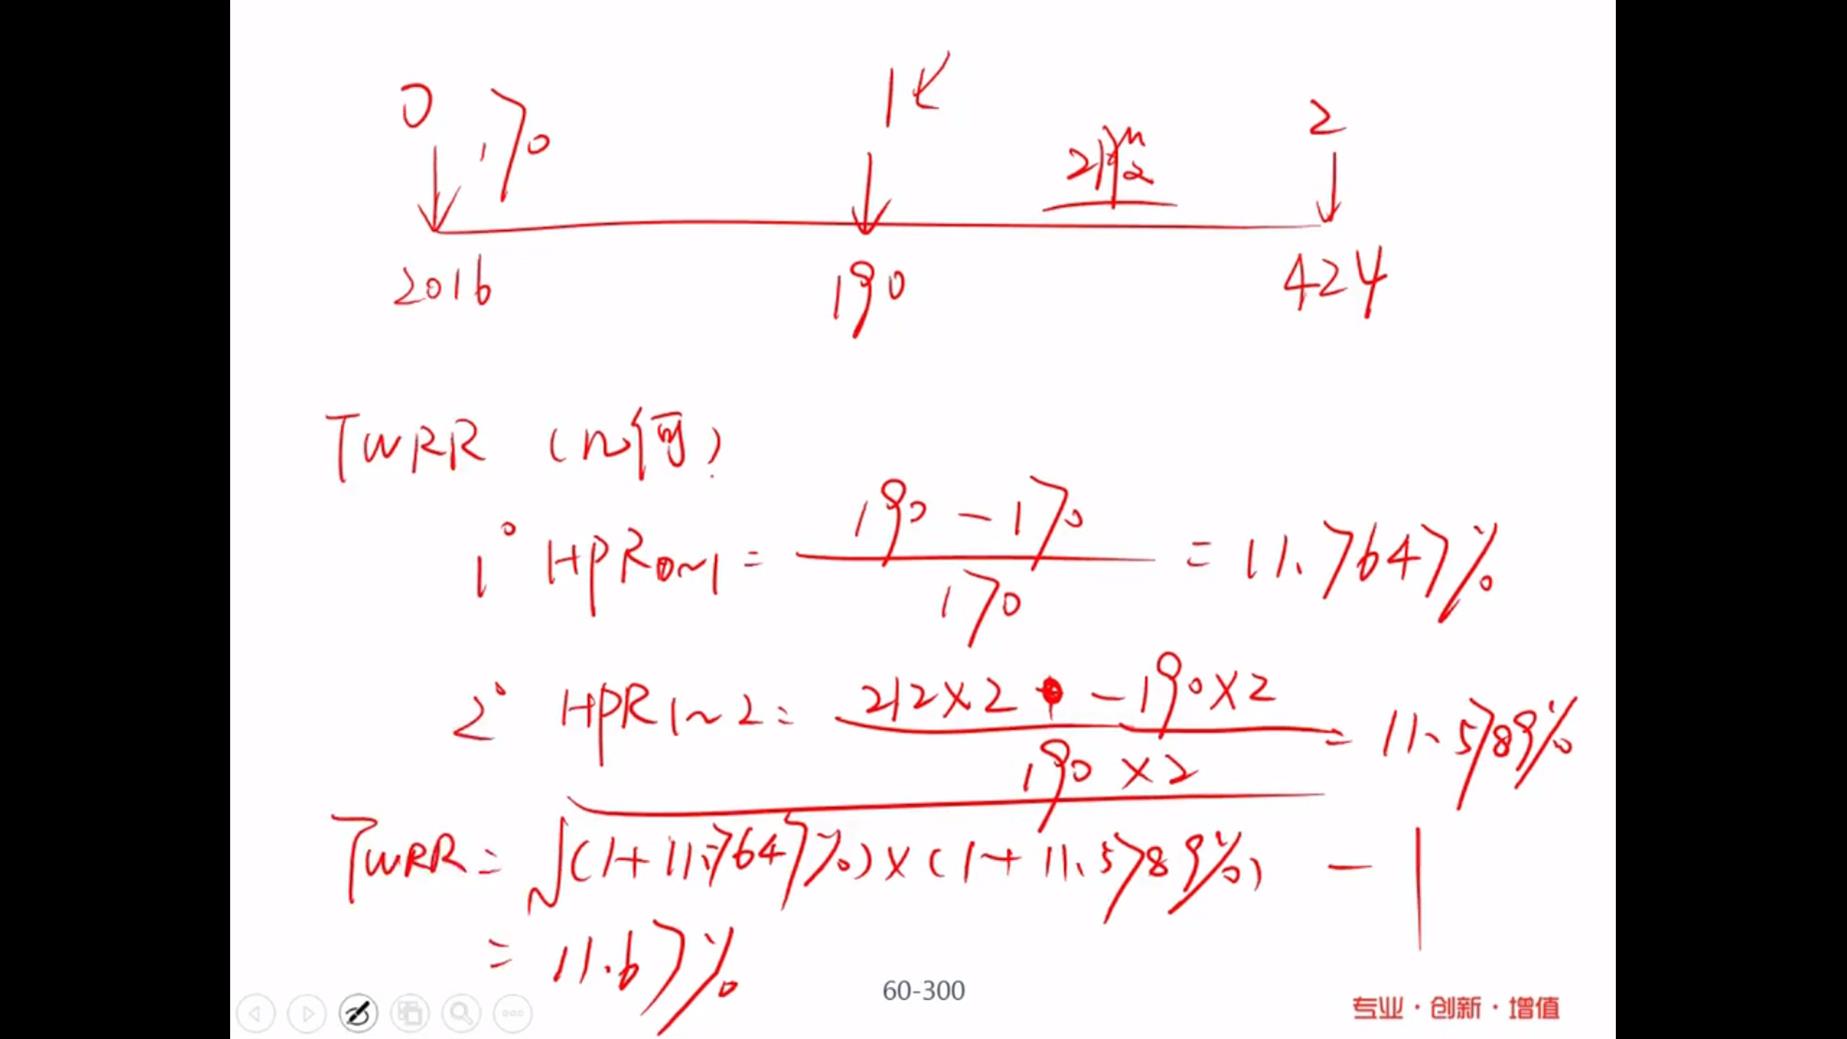 0 170 1 2
2股
2016 190 424
TWRR (几何)
1° HPR0~1 = 190 - 170 / 170 = 11.7647%
2° HPR1~2 = 212×2 - 190×2 / 190×2 = 11.5789%
TWRR = √(1+11.7647%)×(1+11.5789%) - 1
= 11.67%
60-300
专业·创新·增值